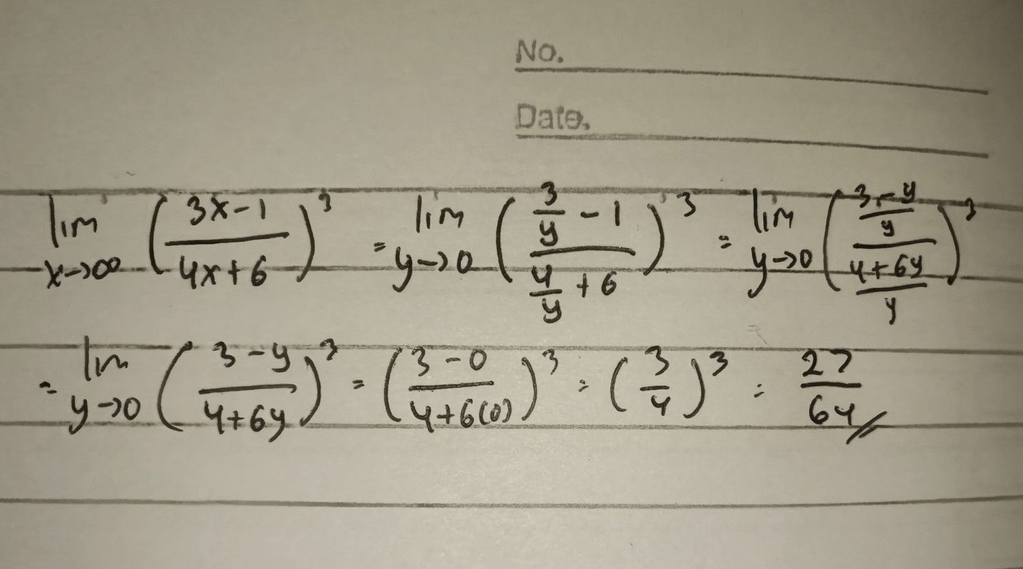 No.
Date.
lim x→∞ ( (3x-1)/(4x+6) )³ = lim y→0 ( (3/y - 1)/(4/y + 6) )³ = lim y→0 ( ((3-y)/y)/((4+6y)/y) )³
= lim y→0 ( (3-y)/(4+6y) )³ = ( (3-0)/(4+6(0)) )³ = (3/4)³ = 27/64 //